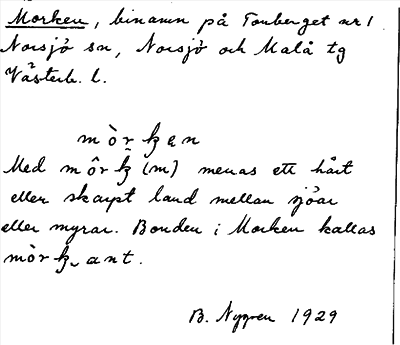 Morken, binamn på Tonberget nr 1
Norsjö sn, Norsjö och Malå tg
Västerb. l.
mòrkən
Med môrk (m) menas ett hårt
eller skarpt land mellan sjöar
eller myrar. Bonden i Morken kallas
mòrk ant.
B. Nygren 1929